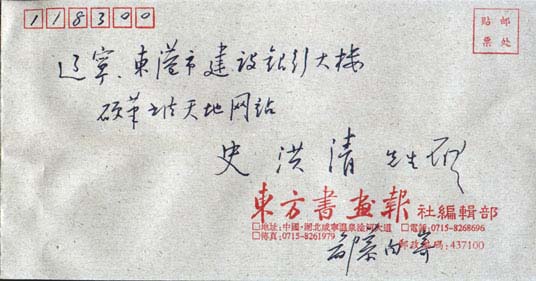 118300
贴邮
票处
辽寧、東港市建设銀行大楼
硕笔天地网站
史洪清 先生
東方書畫報 社編輯部
□地址:中國·湖北咸寧溫泉淦河大道 □電話:0715-8268696
□傳真:0715-8261979 郵政編碼:437100